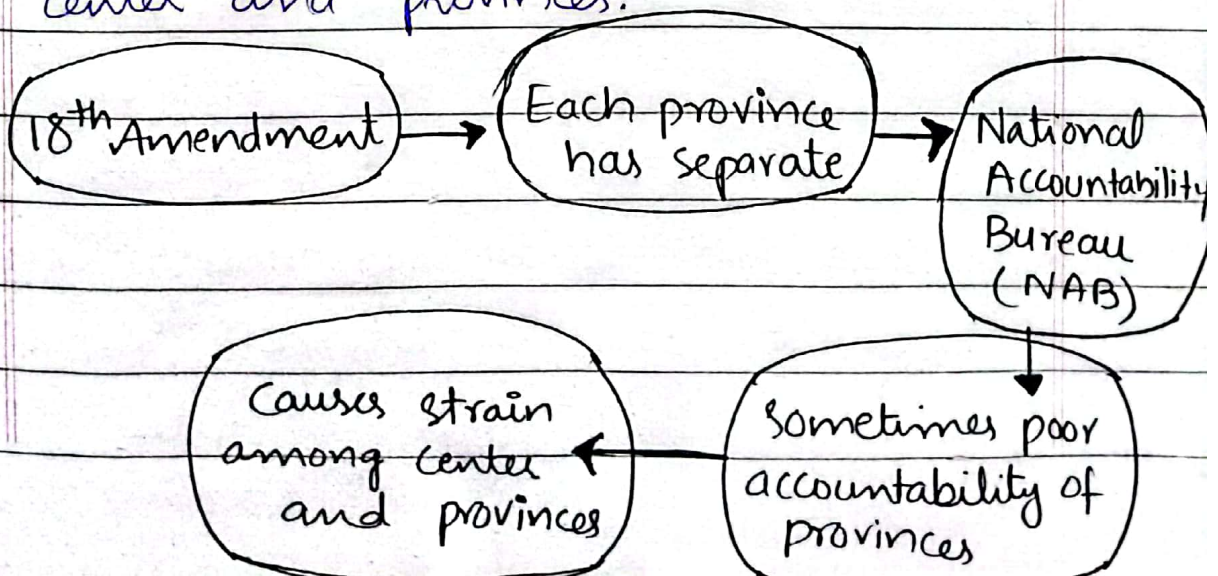 center and provinces.
18th Amendment
Each province
has separate
National
Accountability
Bureau
(NAB)
Sometimes poor
accountability of
provinces
Causes strain
among center
and provinces